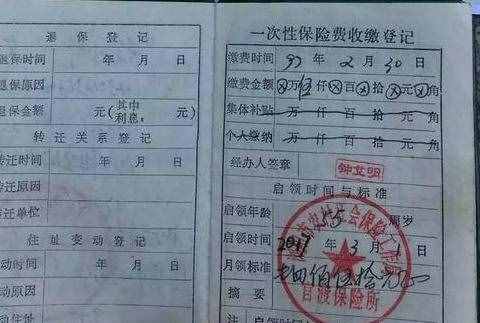 退保登记
退保时间 年 月 日
退保原因
退保金额 元(其中利息: 元)
转迁关系登记
转迁时间 年 月 日
转迁原因
转迁单位
住址变动登记
动时间 年 月 日
动住址
一次性保险费收缴登记
缴费时间 97 年 2 月 30 日
缴费金额 万伍仟 百 拾 元 角
集体补贴 万 仟 百 拾 元 角
个人缴纳 万 仟 百 拾 元 角
经办人签章
启领时间与标准
启领年龄 55 周岁
启领时间 2017 年 3 月 1 日
月领标准
摘要 官渡保险所
注